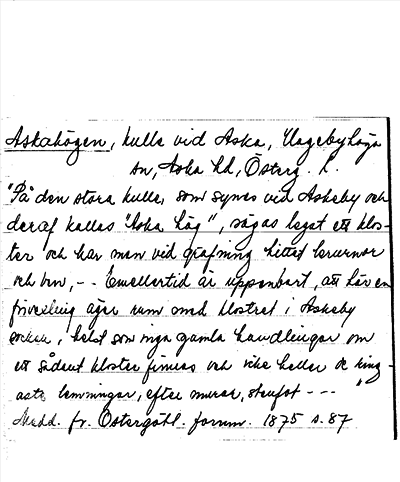 Askahögen, kulle vid Aska, Hagebyhöga
sn, Aska hd, Österg. L.
"På den stora kulle, som synes vid Askeby och
deraf kallas "Aska hög", säges legat ett klos-
ter och har man vid gräfning hittat
och ben, -- Emellertid är uppenbart, att här en
förvexling äger rum med klostret i Askeby
socken, helst som inga gamla handlingar om
ett sådant kloster finnas och icke heller de ring-
aste lemningar, efter murar, stenfot --- "
Medd. fr. Östergötl. fornm. 1875 s. 87